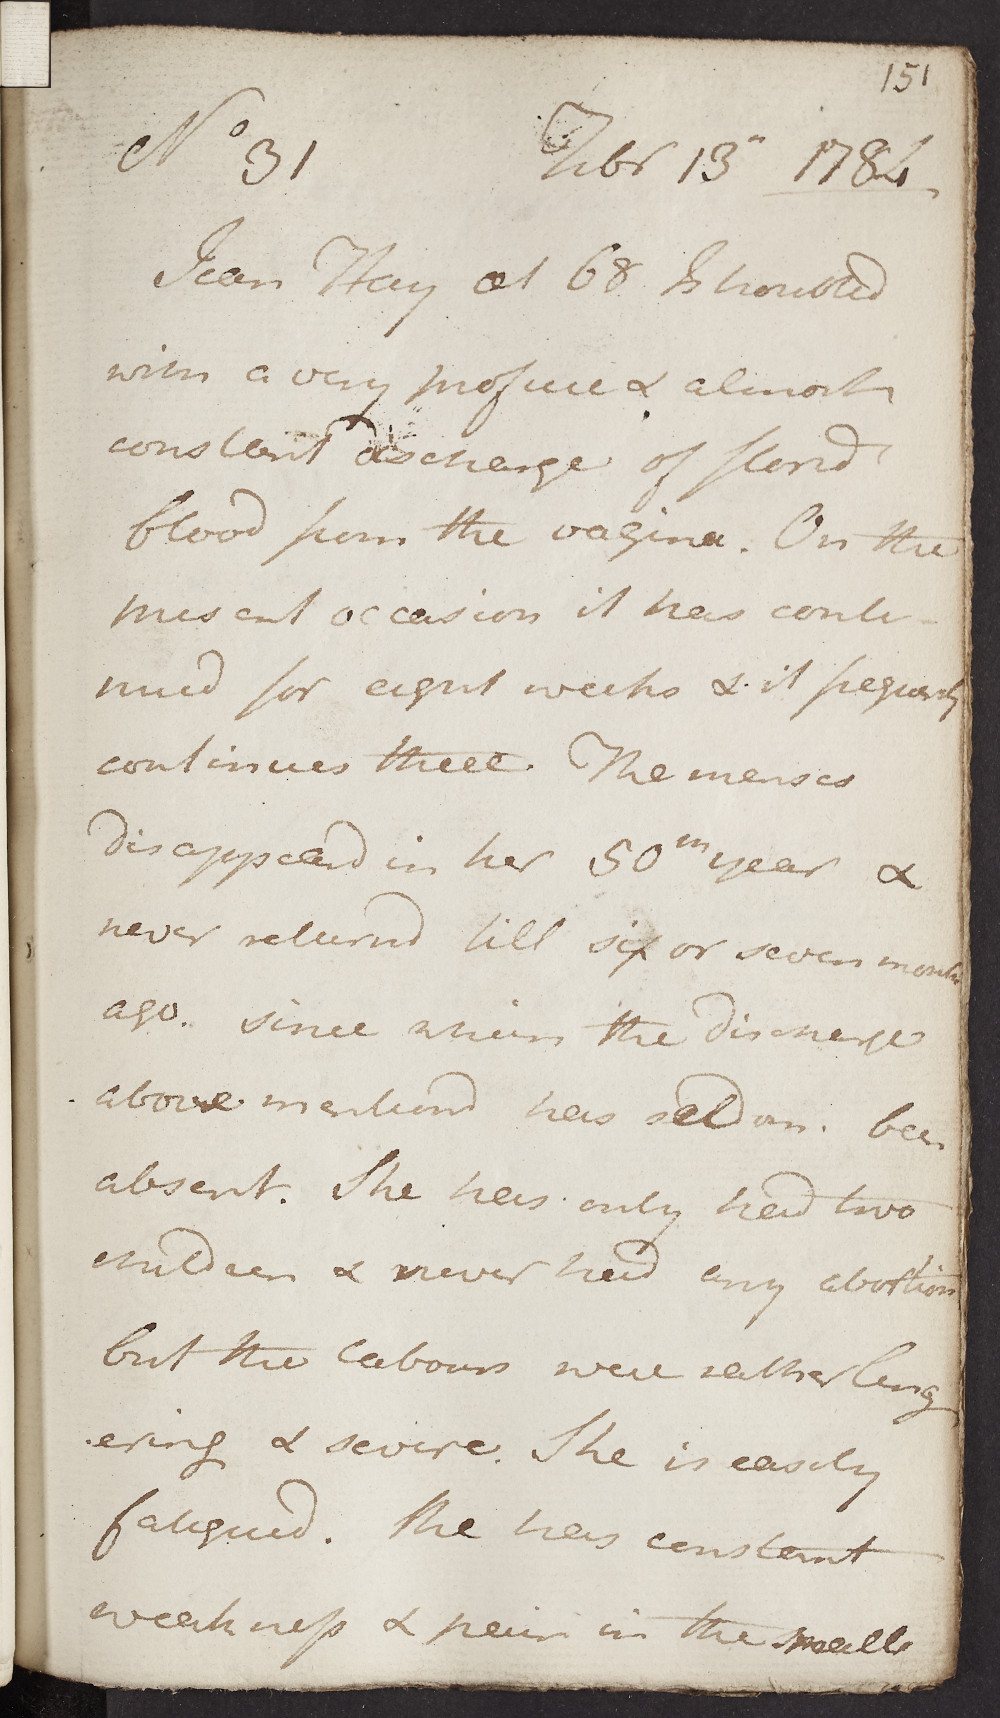 151
No 31 Febr 13th 1784
Jean Hay æt 68 Is troubled
with a very profuse & almost
constant discharge of florid
blood from the vagina. On the
present occasion it has conti-
nued for eight weeks & it frequently
continues three. The menses
disappeard in her 50th year &
never returnd till six or seven months
ago. since which the discharge
above mentiond has seldom been
absent. She has only had two
children & never had any abortion
but the labours were rather ling
ering & severe. She is easily
fatigued. She has constant
weakness & pain in the small